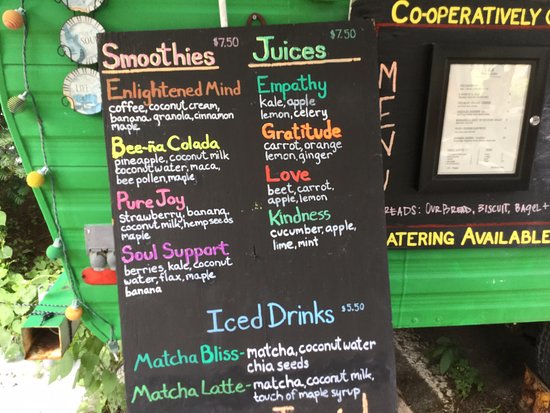 Smoothies $7.50
Enlightened Mind
coffee, coconut, cream,
banana, granola, cinnamon
maple
Bee-ña Colada
pineapple, coconut milk
coconut water, maca,
bee pollen, maple
Pure Joy
strawberry, banana,
coconut milk, hempseeds
maple
Soul Support
berries, kale, coconut
water, flax, maple
banana
Juices $7.50
Empathy
kale, apple
lemon, celery
Gratitude
carrot, orange
lemon, ginger
Love
beet, carrot,
apple, lemon
Kindness
cucumber, apple,
lime, mint
Iced Drinks $5.50
Matcha Bliss- matcha, coconut water
chia seeds
Matcha Latte- matcha, coconut milk,
touch of maple syrup
Co-operatively
MENU
READS: OUR BREAD, BISCUIT, BAGEL +
ATERING AVAILABLE